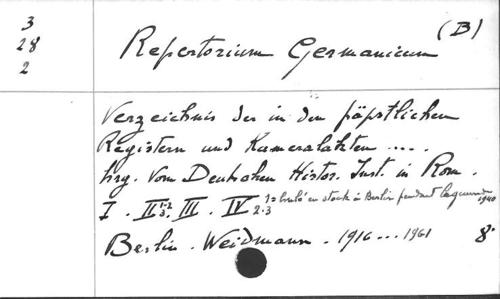 3
28
2
Repertorium Germanicum (B)
Verzeichnis der in den päpstlichen
Registern und Kameralakten ....
hrg. vom Deutschen Histor. Inst. in Rom.
I. II 1.2 3. III. IV 1= brulé en stock à Berlin pendant la guerre 1940
2.3
Berlin. Weidmann. 1916 ... 1961 8°